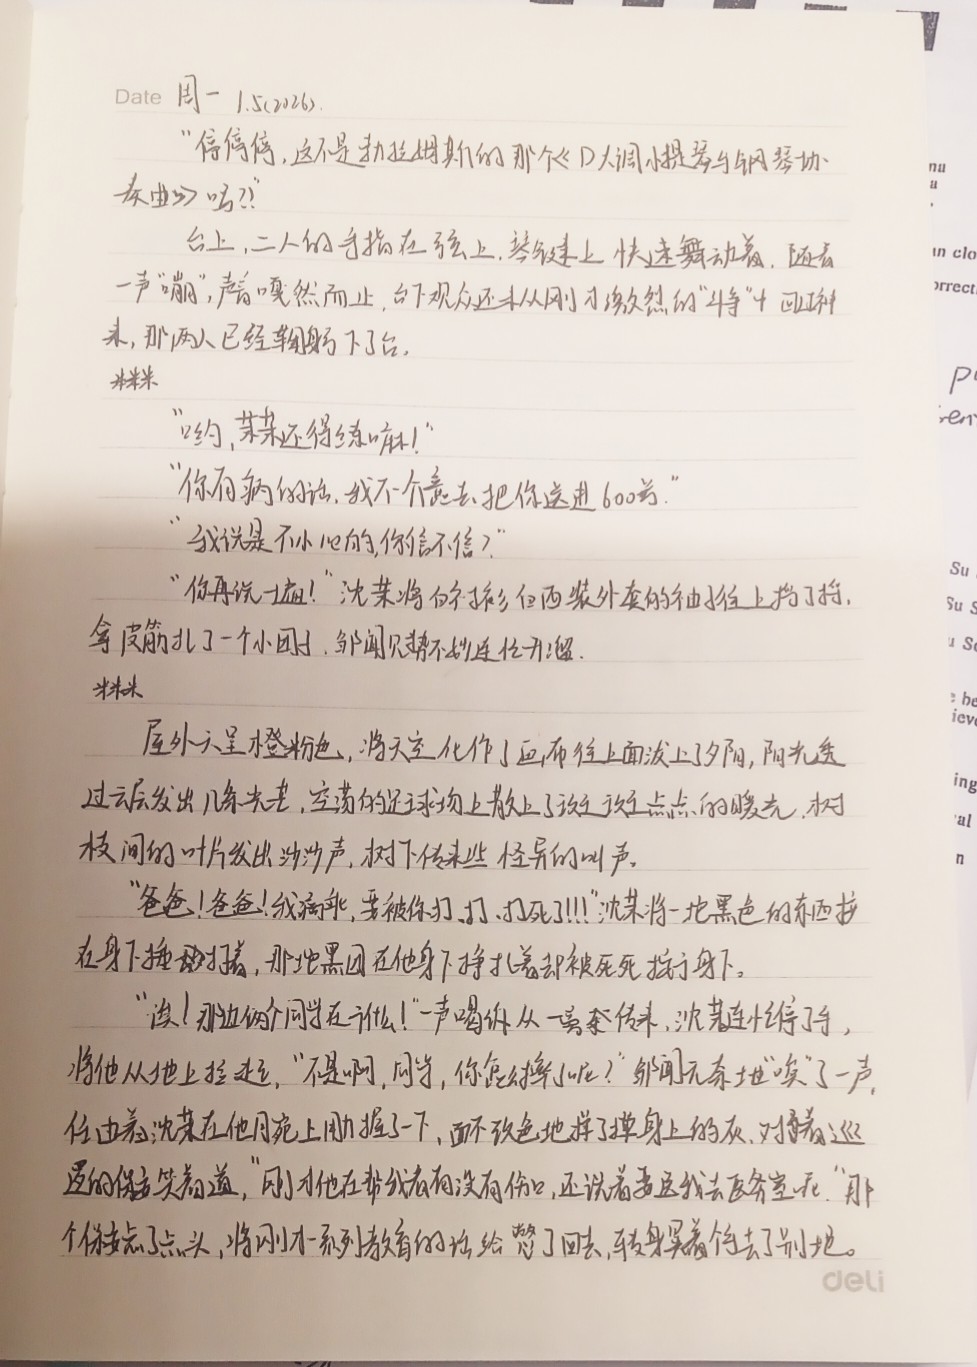 Date 周一 1.5(2026).
"停停停，这不是勃拉姆斯的那个《D大调小提琴与钢琴协
奏曲》吗?!"
台上，二人的手指在弦上、琴键上快速舞动着，随着
一声"嘣"，声音戛然而止，台下观众还未从刚才激烈的"斗争"中回过神
来，那两人已经鞠躬下了台。
***
"哟，某某还得练嘛！"
"你有病的话，我不介意去把你送进600号."
"我说是不小心的，你信不信？"
"你再说一遍！"沈某将白衬衫和西装外套的袖子往上捋了捋，
拿皮筋扎了一个小团子，邹闻见势不妙连忙开溜.
***
屋外天呈橙粉色，将天空化作了画布往上面泼上了夕阳，阳光透
过云层发出几条光走，空荡的足球场上散上了斑斑点点的暖光，树
枝间的叶片发出沙沙声，树下传来些怪异的叫声。
"爸爸！爸爸！我滴乖，要被你打、打、打死了!!!"沈某将一地黑色的东西按
在身下捶打着，那地黑团在他身下挣扎着却被死死按于身下。
"诶！那边俩个同学在干什么！"一声喝从传来，沈某连忙停了手，
将他从地上拉起，"不是啊，同学，你怎么摔了呢？"邹闻无奈地"唉"了一声，
任由着沈某在他月宛上用力握了一下，面不改色地掸了掸身上的灰，对着巡
逻的保安笑着道，"刚才他在帮我看有没有伤口，还说着要送我去医务室呢."那
个保安点了点头，将刚才一系列教育的话给憋了回去，转身去了别地。
deli